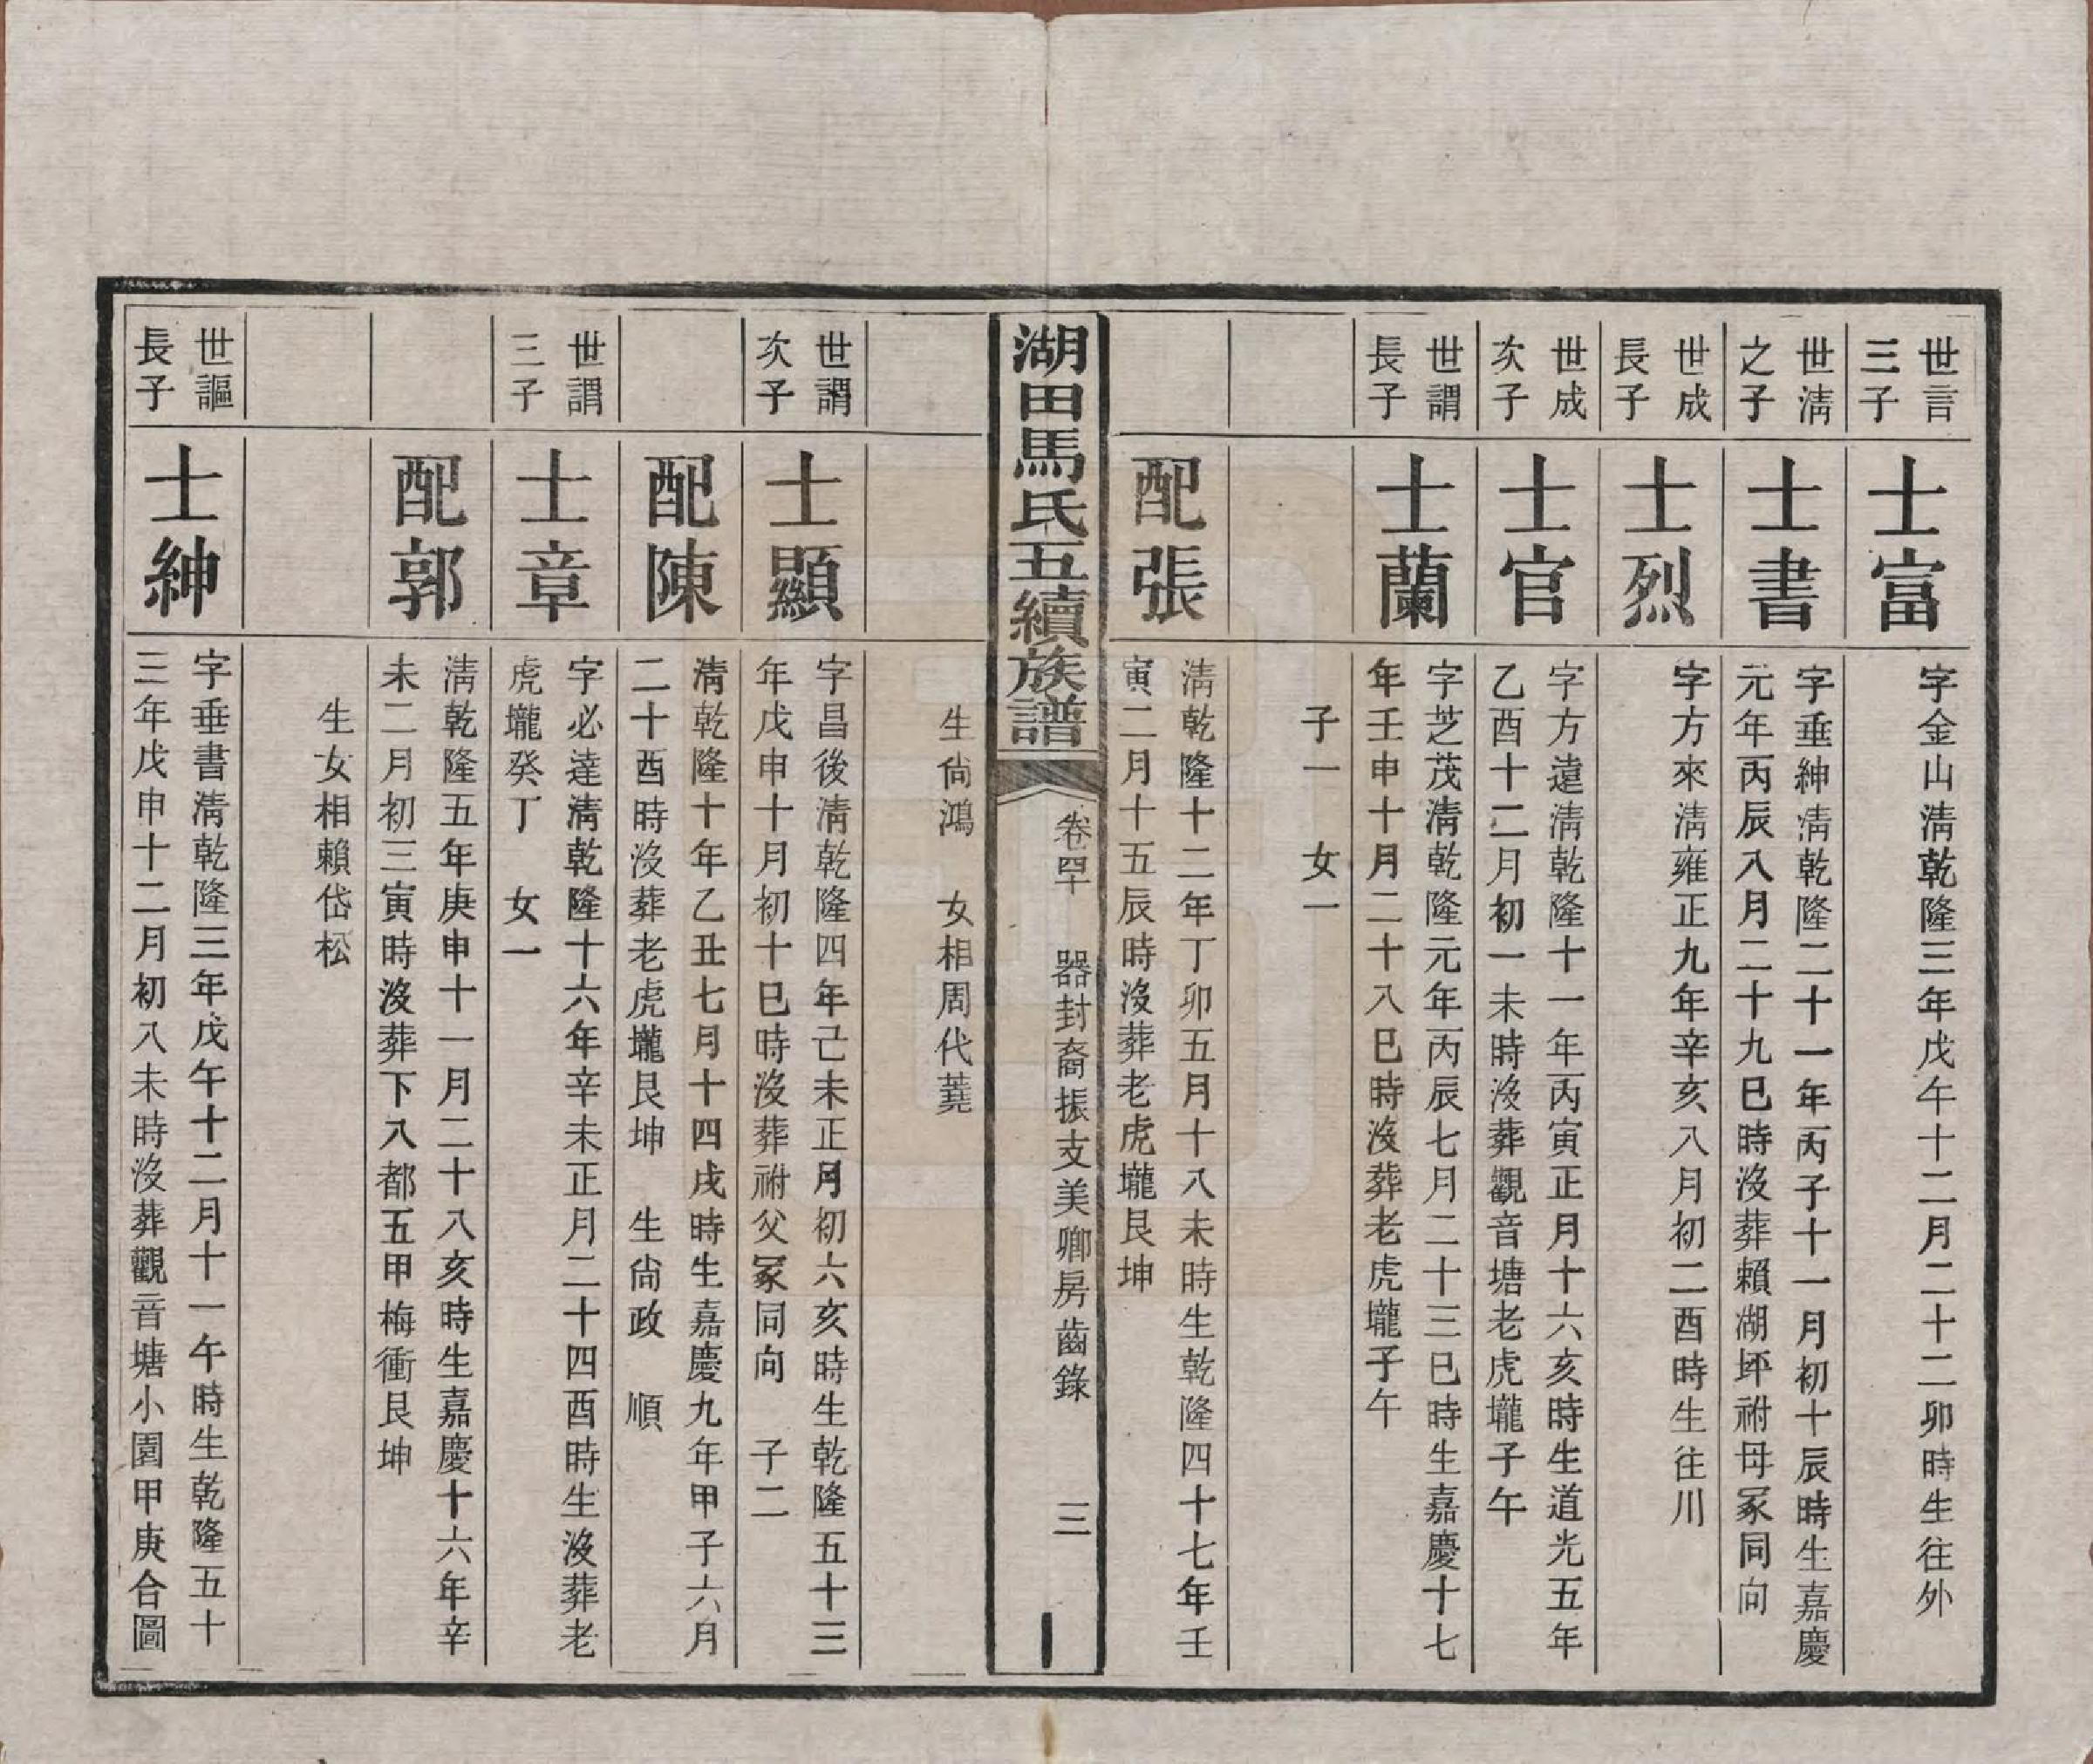 世言
三子
士富
字金山淸乾隆三年戊午十二月二十二卯時生往外
世淸
之子
士書
字垂紳淸乾隆二十一年丙子十一月初十辰時生嘉慶
元年丙辰八月二十九巳時沒葬賴湖坪祔母冢同向
世成
長子
士烈
字方來淸雍正九年辛亥八月初二酉時生往川
世成
次子
士官
字方遠淸乾隆十一年丙寅正月十六亥時生道光五年
乙酉十二月初一未時沒葬觀音塘老虎壠子午
世謂
長子
士蘭
字芝茂淸乾隆元年丙辰七月二十三巳時生嘉慶十七
年壬申十月二十八巳時沒葬老虎壠子午
子一 女一
配張
淸乾隆十二年丁卯五月十八未時生乾隆四十七年壬
寅二月十五辰時沒葬老虎壠艮坤
湖田馬氏五續族譜
卷四十 器封裔振支美卿房齒錄 三
生尙鴻 女相周代蕘
世謂
次子
士顯
字昌後淸乾隆四年己未正月初六亥時生乾隆五十三
年戊申十月初十巳時沒葬祔父冢同向 子二
配陳
淸乾隆十年乙丑七月十四戌時生嘉慶九年甲子六月
二十酉時沒葬老虎壠艮坤 生尙政 順
世謂
三子
士章
字必達淸乾隆十六年辛未正月二十四酉時生沒葬老
虎壠癸丁 女一
配郭
淸乾隆五年庚申十一月二十八亥時生嘉慶十六年辛
未二月初三寅時沒葬下八都五甲梅衝艮坤
生女相賴岱松
世謳
長子
士紳
字垂書淸乾隆三年戊午十二月十一午時生乾隆五十
三年戊申十二月初八未時沒葬觀音塘小園甲庚合圖